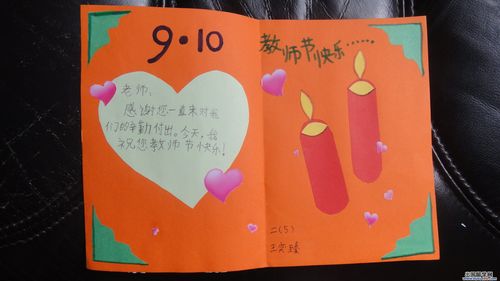 9·10
老师、
感谢您一直来对我
们的辛勤付出。今天,我
祝您教师节快乐!
教师节快乐……
二(5)